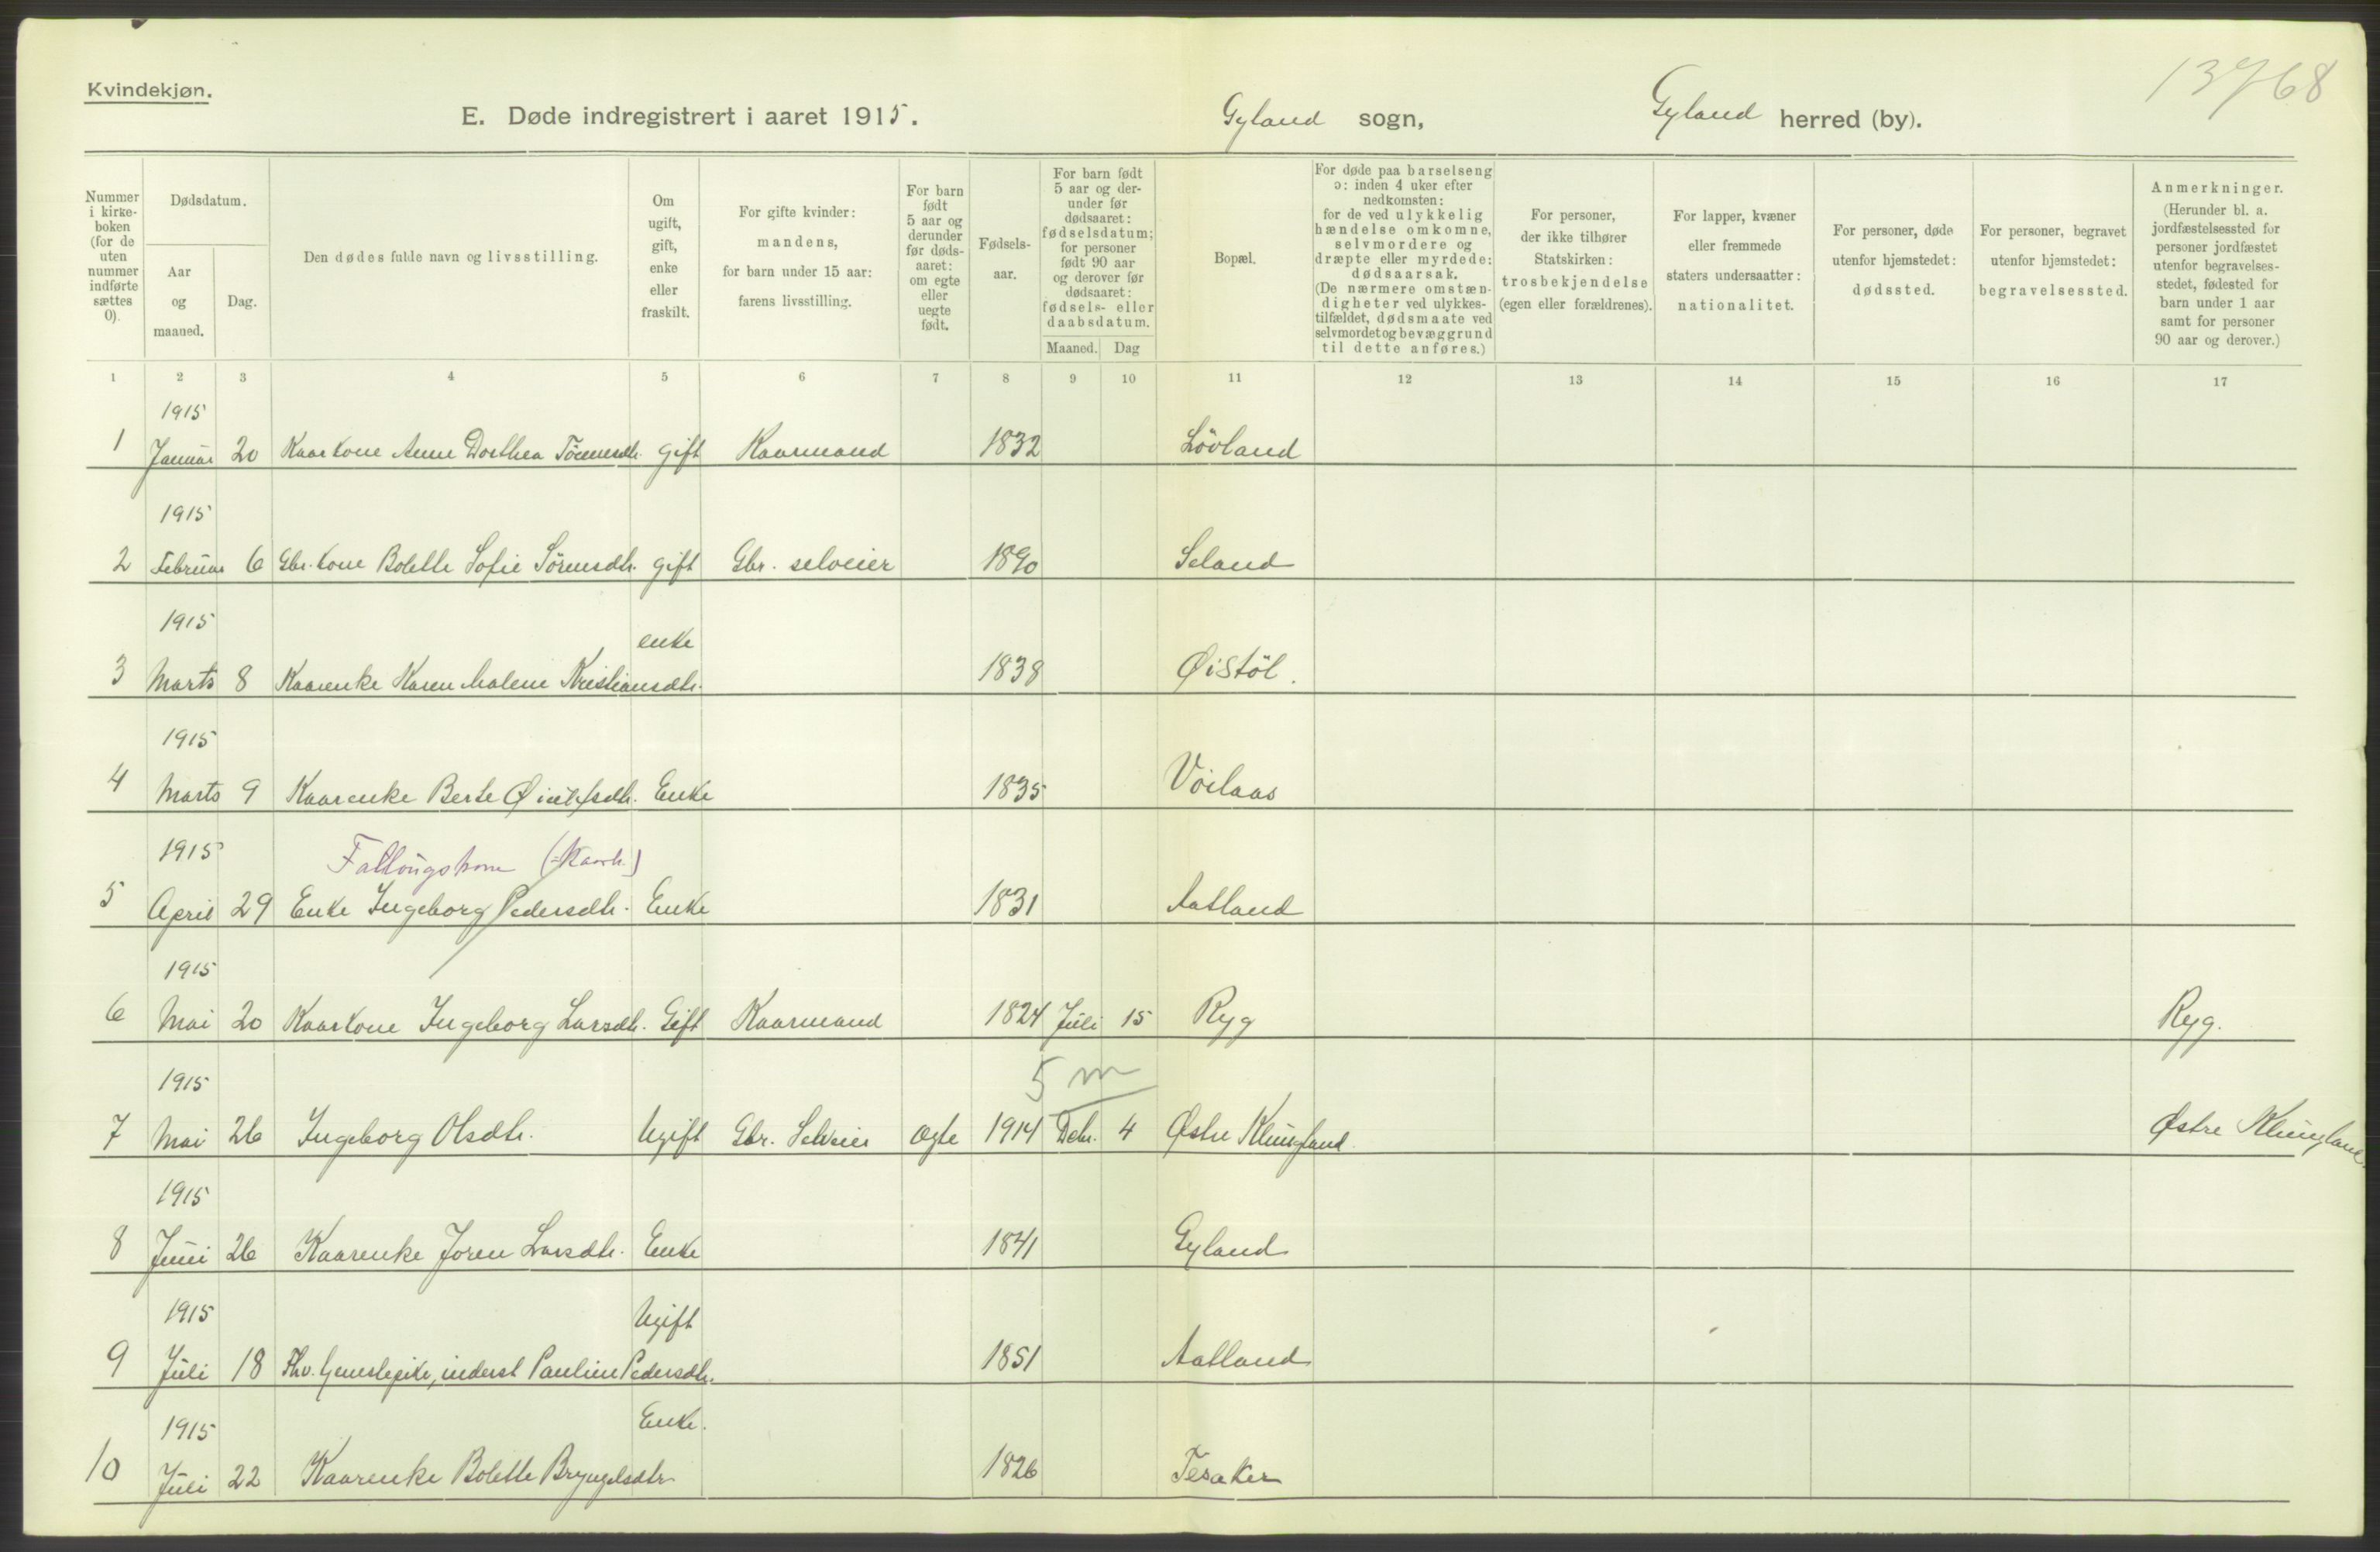 13768
Kvindekjøn.
E. Døde indregistrert i aaret 1915. Gyland sogn, Gyland herred (by).
Nummer i kirkeboken (for de uten nummer indførte sættes 0).
Dødsdatum.
Aar og maaned.
Dag.
Den dødes fulde navn og livsstilling.
Om ugift, gift, enke eller fraskilt.
For gifte kvinder: mandens, for barn under 15 aar: farens livsstilling.
For barn født 5 aar og derunder før dødsaaret: om egte eller uegte født.
Fødselsaar.
For barn født 5 aar og derunder før dødsaaret: fødselsdatum; for personer født 90 aar og derover før dødsaaret: fødsels- eller daabsdatum.
Maaned. Dag
Bopæl.
For døde paa barselseng ɔ: inden 4 uker efter nedkomsten: for de ved ulykkelig hændelse omkomne, selvmordere og dræpte eller myrdede: dødsaarsak. (De nærmere omstændigheter ved ulykkestilfældet, dødsmaate ved selvmordet og bevæggrund til dette anføres.)
For personer, der ikke tilhører Statskirken: trosbekjendelse (egen eller forældrenes).
For lapper, kvæner eller fremmede staters undersaatter: nationalitet.
For personer, døde utenfor hjemstedet: dødssted.
For personer, begravet utenfor hjemstedet: begravelsessted.
Anmerkninger. (Herunder bl. a. jordfæstelsessted for personer jordfæstet utenfor begravelsesstedet, fødested for barn under 1 aar samt for personer 90 aar og derover.)
1 2 3 4 5 6 7 8 9 10 11 12 13 14 15 16 17
1915
1 Januar 20 Kaarkone Anne Dorthea Tönnesdtr. gift Kaarmand 1832 Lövland
1915
2 Februar 6 Gbr. kone Bolette Sofie Sörensdtr. gift Gbr. selveier 1890 Seland
1915
enke
3 Marts 8 Kaarenke Karen Malene Kristiansdtr. 1838 Øistöl.
1915
4 Marts 9 Kaarenke Berte Enke 1835 Voilaas
1915
5 April 29 Enke Ingeborg Pedersdtr. Enke 1831 Aatland
1915
6 Mai 20 Kaarkone Ingeborg Larsdtr. Gift Kaarmand 1824 Juli 15 Ryg Ryg.
5 m
1915
7 Mai 26 Ingeborg Olsdtr. Ugift Gbr. Selveier ægte 1914 Debr. 4 Østre Klungland. Østre Klungland.
1915
8 Juni 26 Kaarenke Joren Larsdtr. Enke 1841 Gyland
1915
Ugift
9 Juli 18 inderst Pauline Pedersdtr. 1851 Aatland
1915
Enke.
10 Juli 22 Kaarenke Bolette Bryngelsdtr 1826 Tesaker